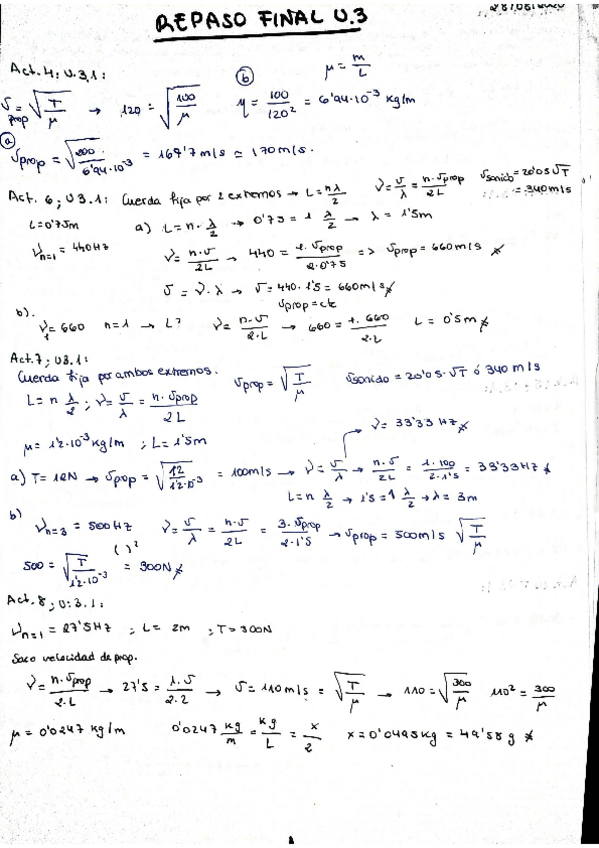 REPASO FINAL U.3
Act. 4; U.3.1:
ⓑ μ = m/L
v prop = √(T/μ) → 120 = √(100/μ) η = 100/120² = 6'94·10⁻³ kg/m
ⓐ
vprop = √(200/6'94·10⁻³) = 169'7 m/s ≃ 170 m/s.
Act. 6; U3.1: Cuerda fija por 2 extremos → L = nλ/2 ν = v/λ = n·vprop/2L vsonido = 20'05√T = 340 m/s
L = 0'75m a) L = n·λ/2 → 0'75 = 1 λ/2 → λ = 1'5m
νn=1 = 440Hz ν = n·v/2L → 440 = 1·vprop/2·0'75 => vprop = 660 m/s
v = ν·λ → v = 440·1'5 = 660 m/s
vprop = cte
b).
ν₁ = 660 n=1 → L? ν = n·v/2·L → 660 = 1·660/2·L L = 0'5m
Act. 7; U3.1:
Cuerda fija por ambos extremos. vprop = √(T/μ) vsonido = 20'05·√T ó 340 m/s
L = n λ/2 ; ν = v/λ = n·vprop/2L
ν = 33'33 Hz
μ = 1'2·10⁻³ kg/m ; L = 1'5m
a) T = 12N → vprop = √(12/1'2·10⁻³) = 100m/s → ν = v/λ → n·v/2L = 1·100/2·1'5 = 33'33Hz
L = n λ/2 → 1'5 = 1 λ/2 → λ = 3m
b)
νn=3 = 500Hz ν = v/λ = n·v/2L = 3·vprop/2·1'5 → vprop = 500m/s √(T/μ)
( )²
500 = √(T/1'2·10⁻³) = 300N
Act. 8; U.3.1:
νn=1 = 27'5Hz ; L = 2m ; T = 300N
Saco velocidad de prop.
ν = n·vprop/2·L → 27'5 = 1·v/2·2 → v = 110m/s = √(T/μ) → 110 = √(300/μ) 110² = 300/μ
μ = 0'0247 kg/m 0'0247 kg/m = kg/L = x/2 x = 0'0495kg = 49'58 g